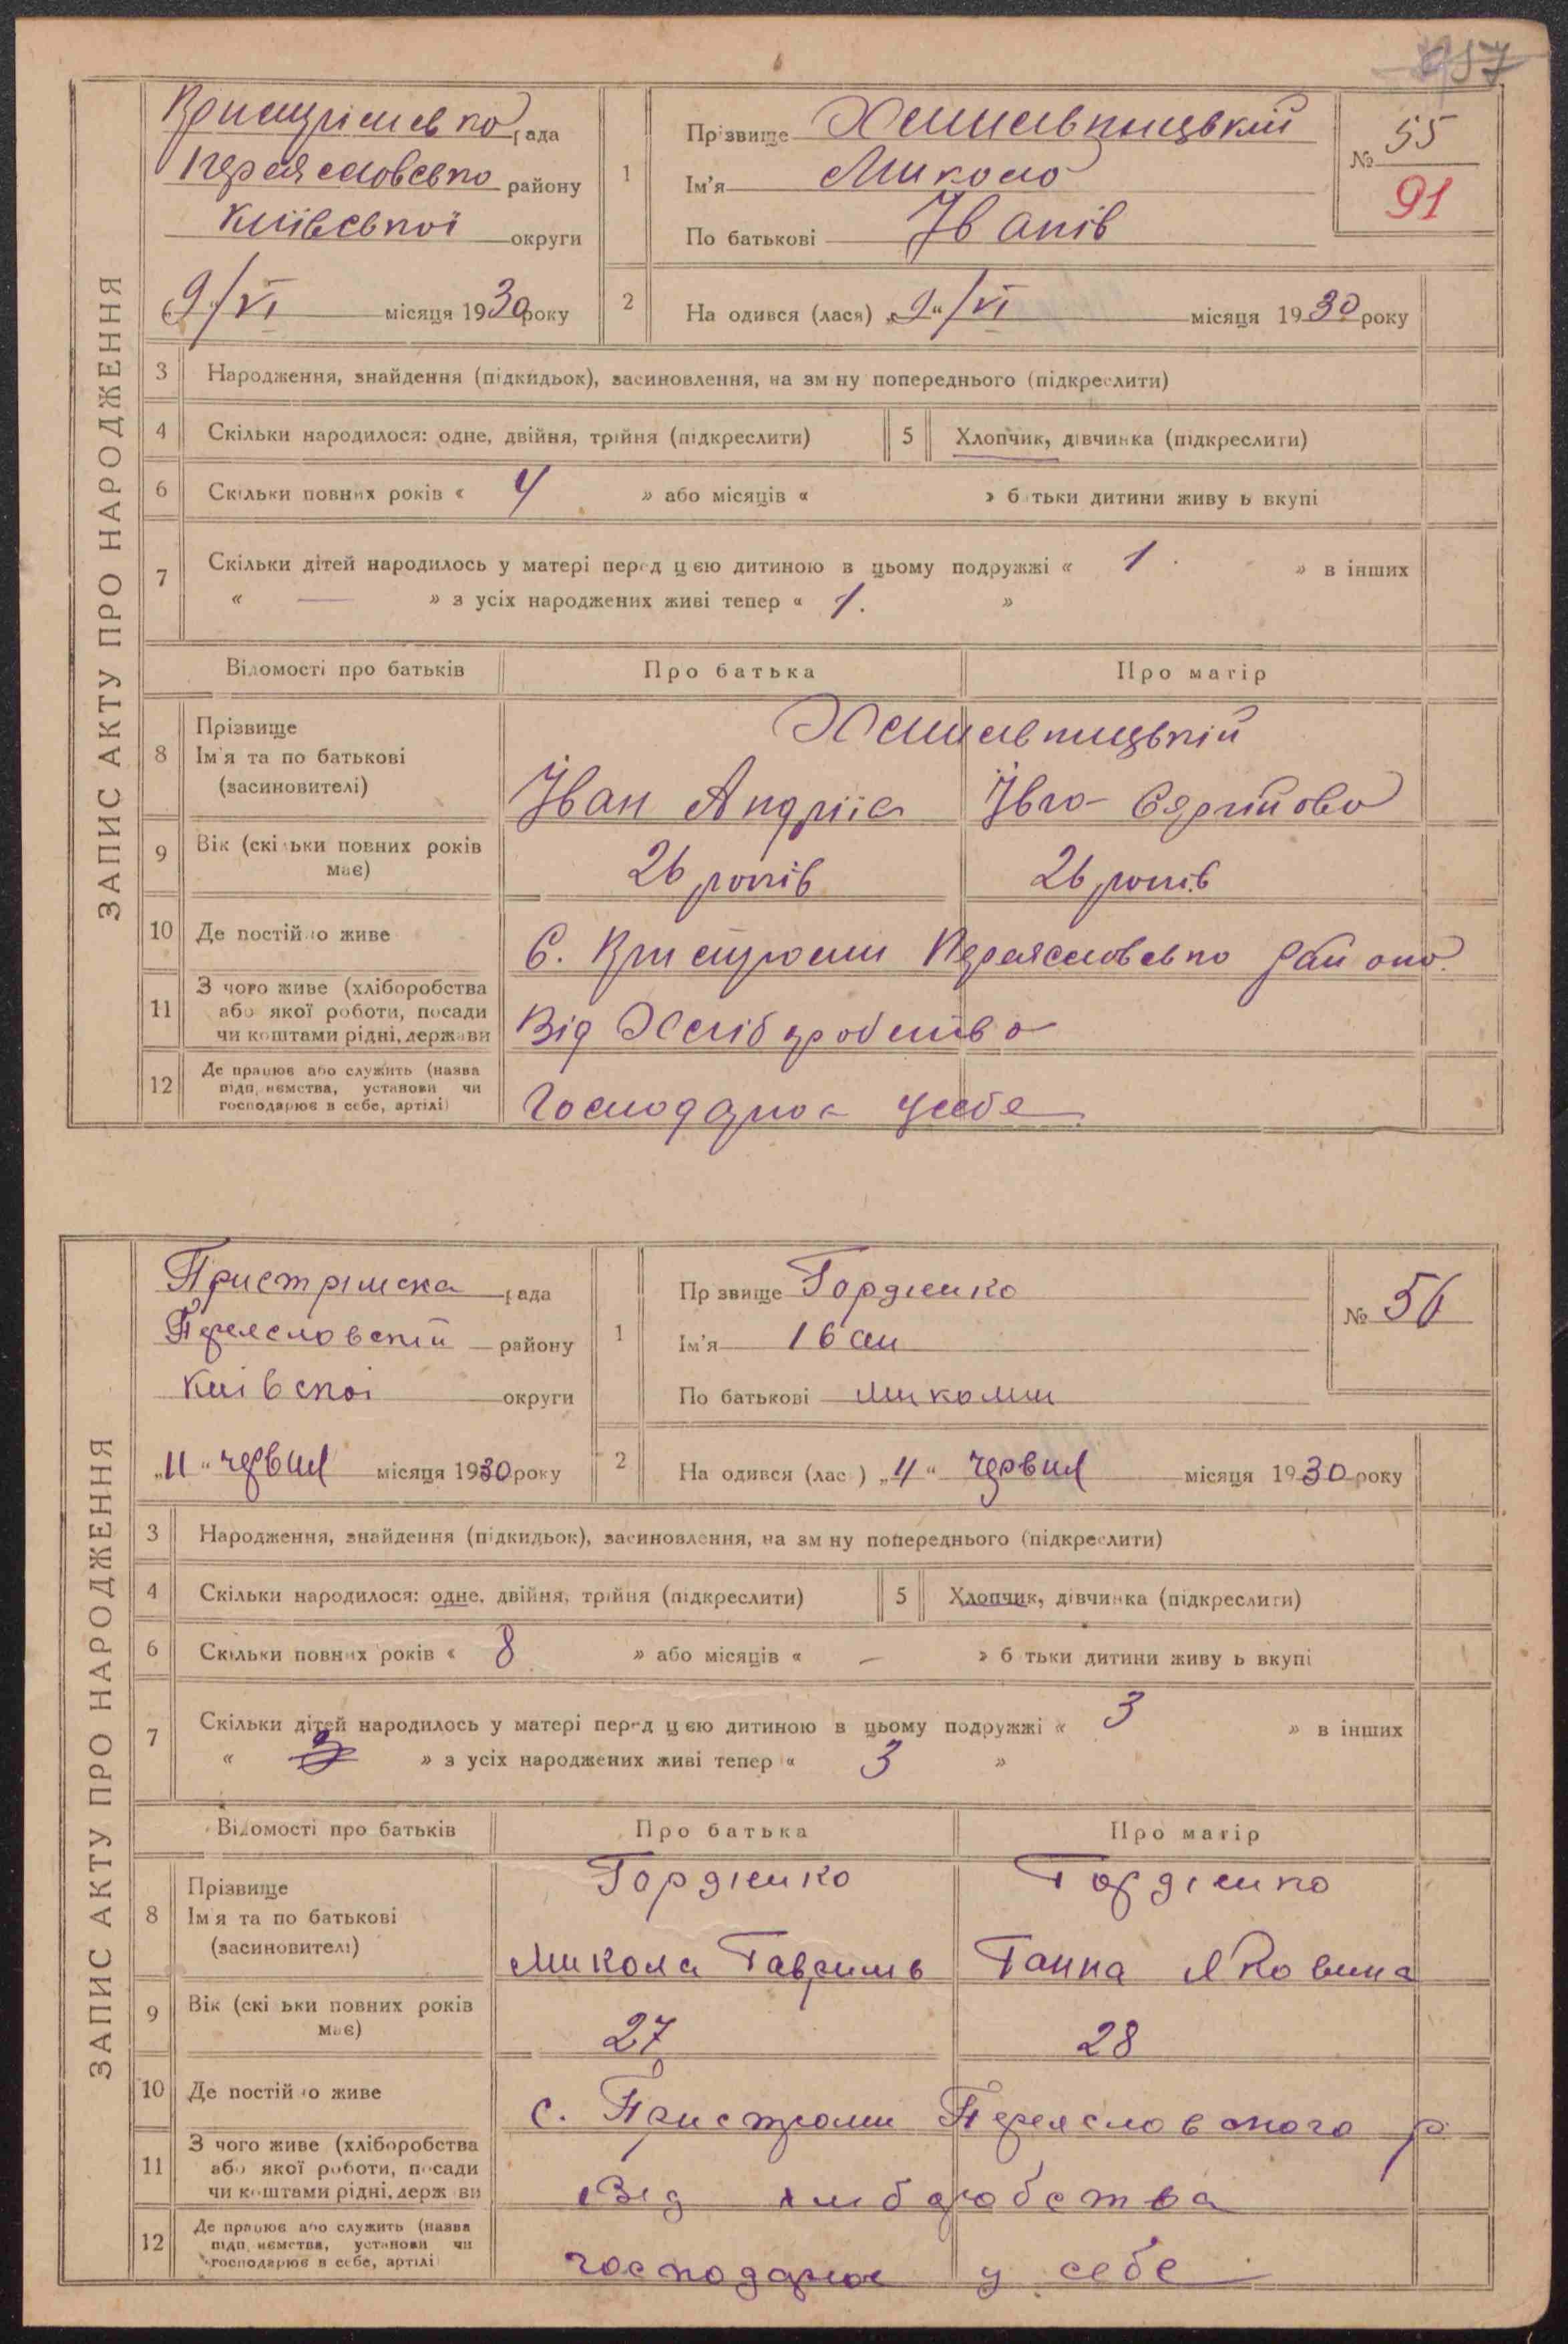 ЗАПИС АКТУ ПРО НАРОДЖЕННЯ
рада
району
Київської округи
9/VI місяця 1930 року
1
Прізвище Хмельницький
Ім'я Микола
По батькові Іванів
№ 55
91
2
На одився (лася) „9“/VI місяця 1930 року
3 Народження, знайдення (підкидьок), засиновлення, на зм ну попереднього (підкреслити)
4 Скільки народилося: одне, двійня, трійня (підкреслити)
5 Хлопчик, дівчинка (підкреслити)
6 Скільки повних років « 4 » або місяців « » б тьки дитини живу ь вкупі
7 Скільки дітей народилось у матері перед ц ею дитиною в цьому подружжі « 1 » в інших
« — » з усіх народжених живі тепер « 1. »
Відомості про батьків Про батька Про матір
8 Прізвище
Ім'я та по батькові
(засиновителі)
Іван
9 Вік (скі ьки повних років має)
26 років 26 років
10 Де постій о живе
С. Пристроми
11 З чого живе (хліборобства або якої роботи, посади чи коштами рідні, держави
Від
12 Де працює або служить (назва підп иємства, установи чи господарює в себе, артілі)
ЗАПИС АКТУ ПРО НАРОДЖЕННЯ
Пристрімска рада
району
Київскої округи
„11“ червня місяця 1930 року
1
Пр звище Гордієнко
Ім'я Іван
По батькові
№ 56
2
На одився (лас ) „11“ червня місяця 1930 року
3 Народження, знайдення (підкидьок), засиновлення, на зм ну попереднього (підкреслити)
4 Скільки народилося: одне, двійня, трійня (підкреслити)
5 Хлопчик, дівчинка (підкреслити)
6 Скільки повних років « 8 » або місяців « — » б тьки дитини живу ь вкупі
7 Скільки дітей народилось у матері перед ц ею дитиною в цьому подружжі « 3 » в інших
« » з усіх народжених живі тепер « 3 »
Відомості про батьків Про батька Про матір
8 Прізвище
Ім'я та по батькові
(засиновителі)
Гордієнко Гордієнко
Микола Ганна Яковина
9 Вік (скі ьки повних років має)
27 28
10 Де постій о живе
с. Пристроми Переясловского р
11 З чого живе (хліборобства або якої роботи, посади чи коштами рідні, держ ви
Від хліборобства
12 Де працює або служить (назва підп иємства, установи чи господарює в себе, артілі
господарює у себе